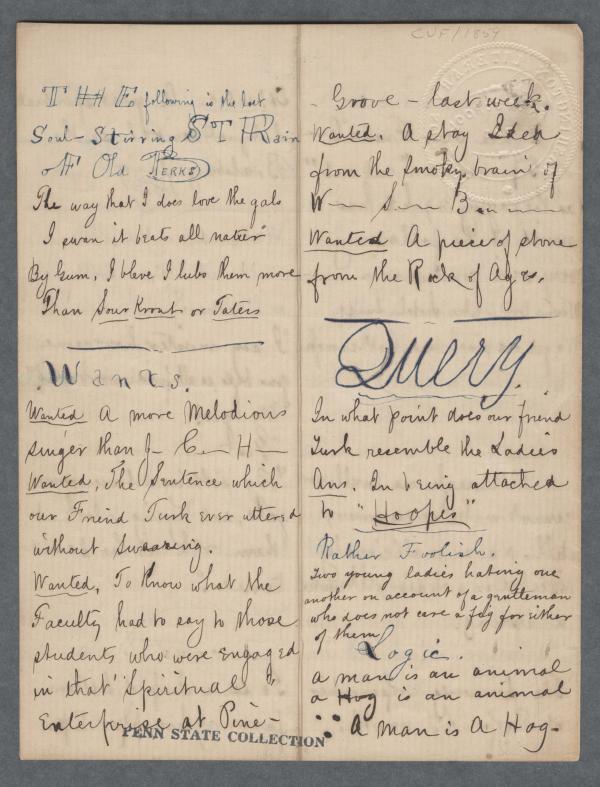 THE following is the last
Soul-Stirring STRain
off Old PERKS
The way that I does love the gals
I swan it beats all natur"
By Gum, I bleve I lubs them more
Than Sour Krout or Taters
Wants.
Wanted A more Melodious
singer than J- C- H-
Wanted, The Sentence which
our Friend Turk ever uttered
without swearing.
Wanted, To Know what the
Faculty had to say to those
students who were engaged
in that "Spiritual"
Enterprise at Pine-
PENN STATE COLLECTION
CUF/1859
Grove - last week.
Wanted. A stray Idea
from the smoky brain of
W- S- B-
Wanted A piece of stone
from the Rock of Ages.
Query.
In what point does our friend
Turk resemble the Ladies
Ans. In being attached
to "Hoopes"
Rather Foolish.
Two young ladies hating one
another on account of a gentleman
who does not care a fig for either
of them
Logic.
a man is an animal
a Hog is an animal
∴ A man is A Hog-